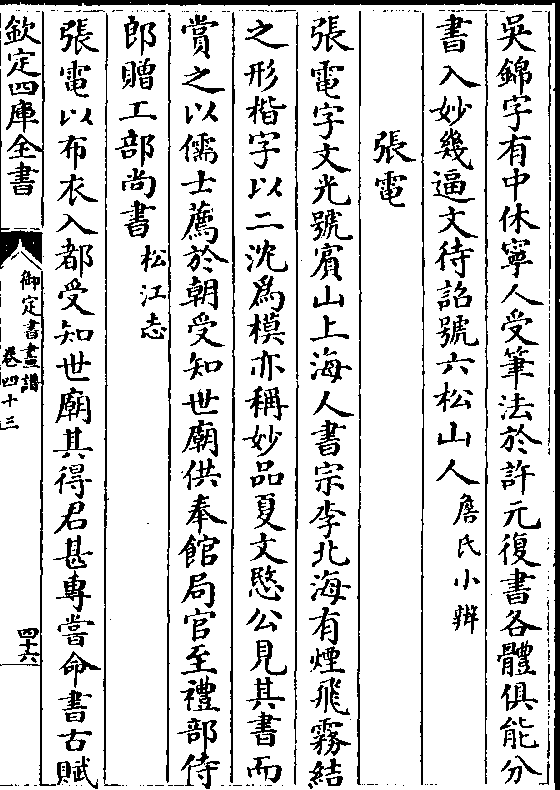 吳錦字有中休寧人受筆法於許元復書各體俱能分
書入妙幾逼文待詔號六松山人詹氏小辨
張電
張電字文光號賓山上海人書宗李北海有煙飛霧結
之形楷字以二沈爲模亦稱妙品夏文愍公見其書而
賞之以儒士薦於朝受知世廟供奉館局官至禮部侍
郎贈工部尚書松江志
張電以布衣入都受知世廟其得君甚專嘗命書古賦
欽定四庫全書
御定書畫譜
卷四十三
四十六